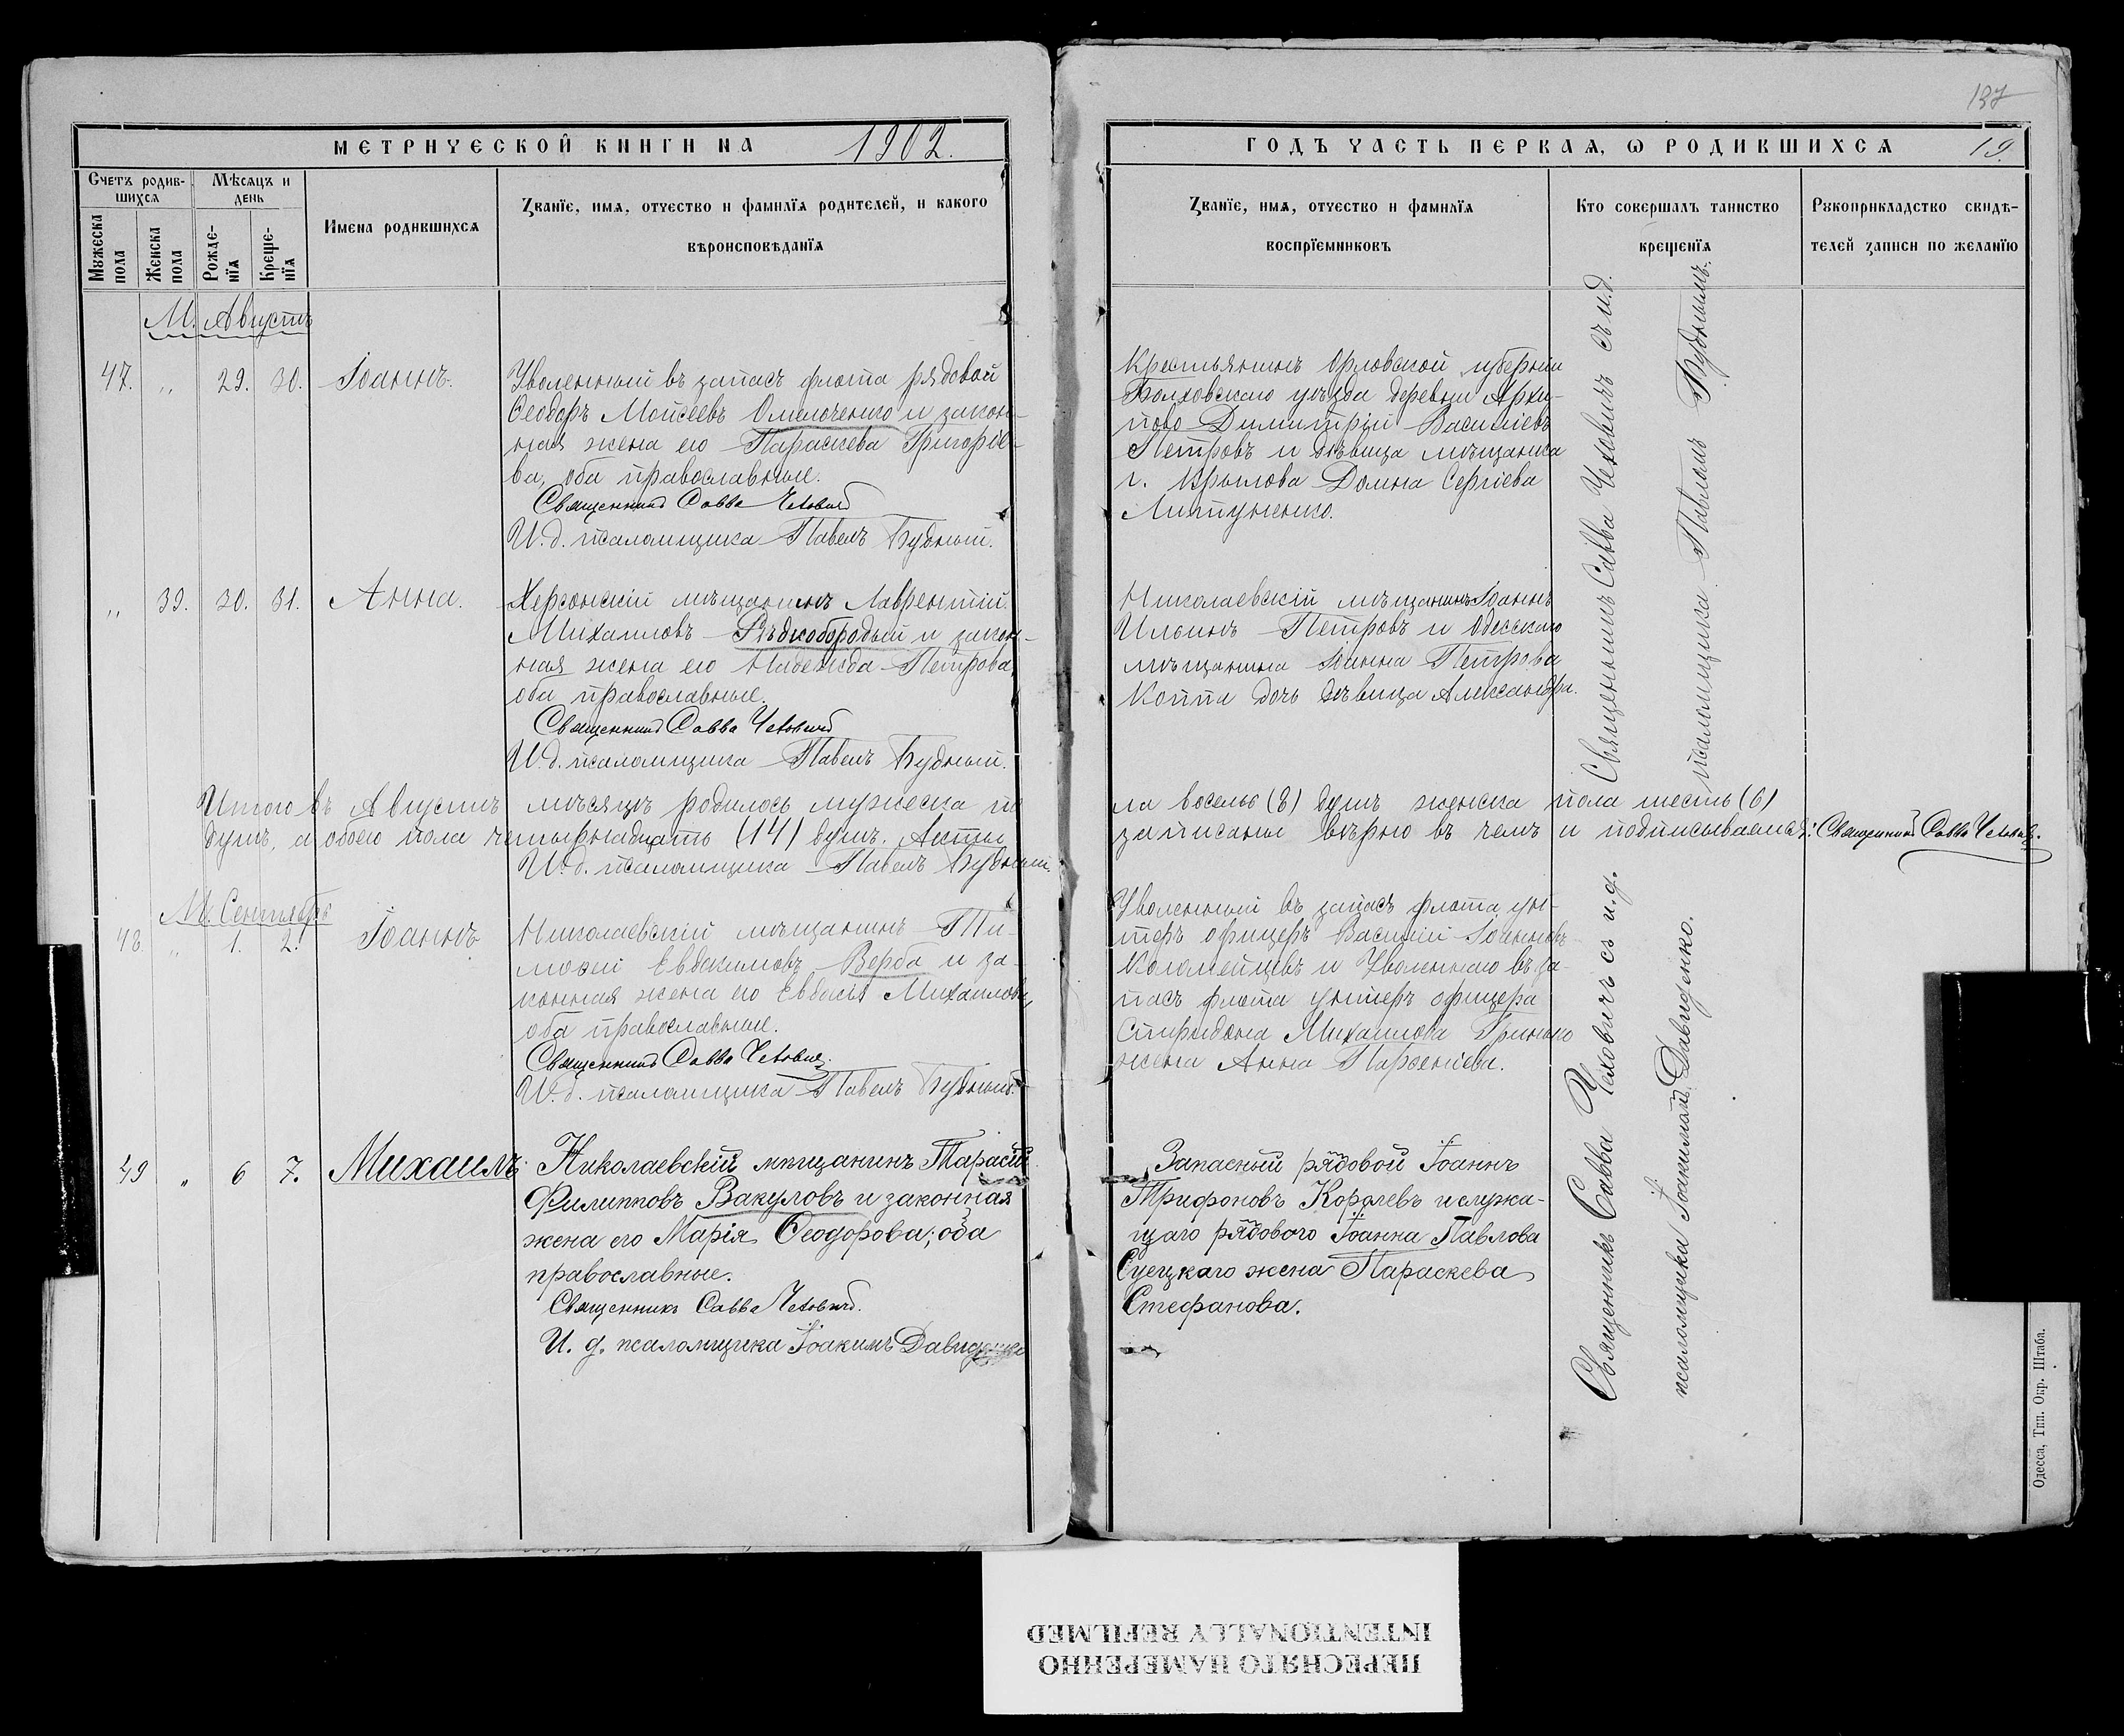 МЕТРИЧЕСКОЙ КНИГИ НА 1902.
Счетъ родив-
шихся
Мѣсяцъ и
день
Мужеска
пола
Женска
пола
Рожде-
нія
Креще-
нія
Имена родившихся
Званіе, имя, отчество и фамилія родителей, и какого
вѣроисповѣданія
М. Августъ
47. „ 29. 30. Іоаннъ.
Уволенный въ запасъ флота рядовой
Ѳеодоръ Моисеевъ Омельченко и закон-
ная жена его Параскева Григоріе-
ва, оба православные.
Священникъ Савва Чеховичъ
И.д. псаломщика Павелъ Будный.
„ 39. 30. 31. Анна.
Херсонскій мѣщанинъ Лаврентій
Михаиловъ Рѣдкобородый и закон-
ная жена его Надежда Петрова,
оба православные.
Священникъ Савва Чеховичъ
И.д. псаломщика Павелъ Будный.
Итого въ Августѣ мѣсяцѣ родилось мужеска по
душъ, а обоего пола четырнадцать (14) душъ. Акты
И.д. псаломщика Павелъ Будный.
М. Сентябрь
48. „ 1. 2. Іоаннъ
Николаевскій мѣщанинъ Ти-
моѳей Евдокимовъ Верба и за-
конная жена его Евдокія Михаилова,
оба православные.
Священникъ Савва Чеховичъ.
И.д. псаломщика Павелъ Будный.
49 „ 6 7. Михаилъ.
Николаевскій мѣщанинъ Тарасій
Филипповъ Вакуловъ и законная
жена его Марія Ѳеодорова; оба
православные.
Священникъ Савва Чеховичъ.
И. д. псаломщика Іоакимъ Давиденко
137
ГОДЪ ЧАСТЬ ПЕРВАЯ, Ѡ РОДИВШИХСЯ 19.
Званіе, имя, отчество и фамилія
воспріемниковъ
Кто совершалъ таинство
крещенія
Рукоприкладство свидѣ-
телей записи по желанію
Крестьянинъ Орловской губерніи
Болховскаго уѣзда деревни Архи-
пово Димитрій Василіевъ
Петровъ и дѣвица мѣщанка
г. Крылова Домна Сергіева
Литущенко.
Николаевскій мѣщанинъ Іоаннъ
Ильинъ Петровъ и Одесскаго
мѣщанина Іоанна Петрова
Коппа дочь дѣвица Александра.
Священникъ Савва Чеховичъ съ и.д.
псаломщика Павломъ Буднымъ.
ла восемь (8) душъ женска пола шесть (6)
записаны вѣрно въ чемъ и подписываемся: Священникъ Савва Чеховичъ.
Уволенный въ запасъ флота ун-
теръ офицеръ Василій Іоанновъ
Коломейцевъ и Уволеннаго въ за-
пасъ флота унтеръ офицера
Спиридона Михаилова Гринько
жена Анна Парѳеніева.
Запасный рядовой Іоаннъ
Трифоновъ Королевъ и служа-
щаго рядового Іоанна Павлова
Суецкаго жена Параскева
Стефанова.
Священникъ Савва Чеховичъ съ и.д.
псаломщика Іоакимомъ Давиденко.
Одесса, Тип. Окр. Штаба.
ПЕРЕСНЯТО НАМЕРЕННО
INTENTIONALLY REFILMED